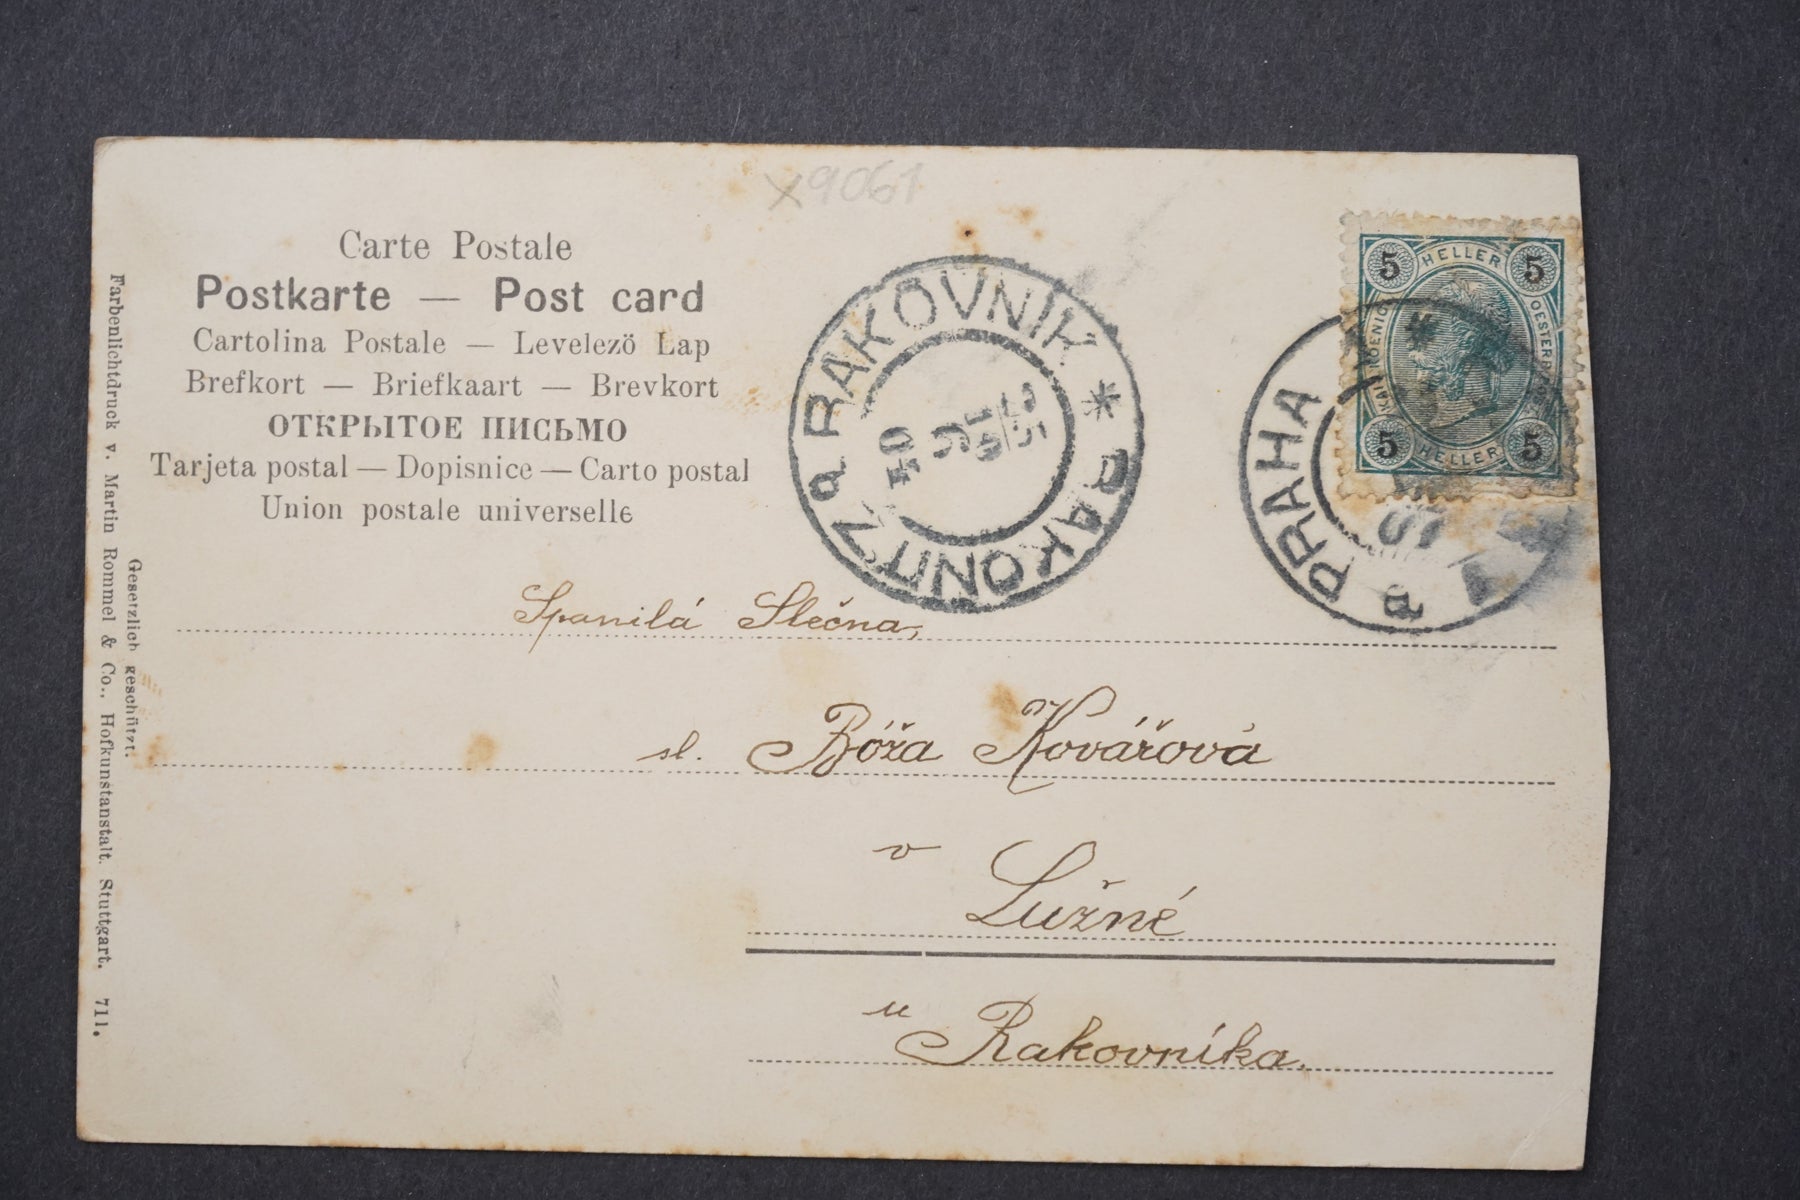 x9061
Carte Postale
Postkarte — Post card
Cartolina Postale — Levelező Lap
Brefkort — Briefkaart — Brevkort
ОТКРЫТОЕ ПИСЬМО
Tarjeta postal — Dopisnice — Carto postal
Union postale universelle
Farbenlichtdruck v. Martin Rommel & Co., Hofkunstanstalt. Stuttgart. 711.
Gesetzlich geschützt.
RAKOVNÍK * RAKONITZ a
PRAHA
a
5 HELLER 5
OESTERR
5 HELLER 5
Spanilá Slečna,
sl. Bóža Kovářová
v Lužné
u Rakovníka.